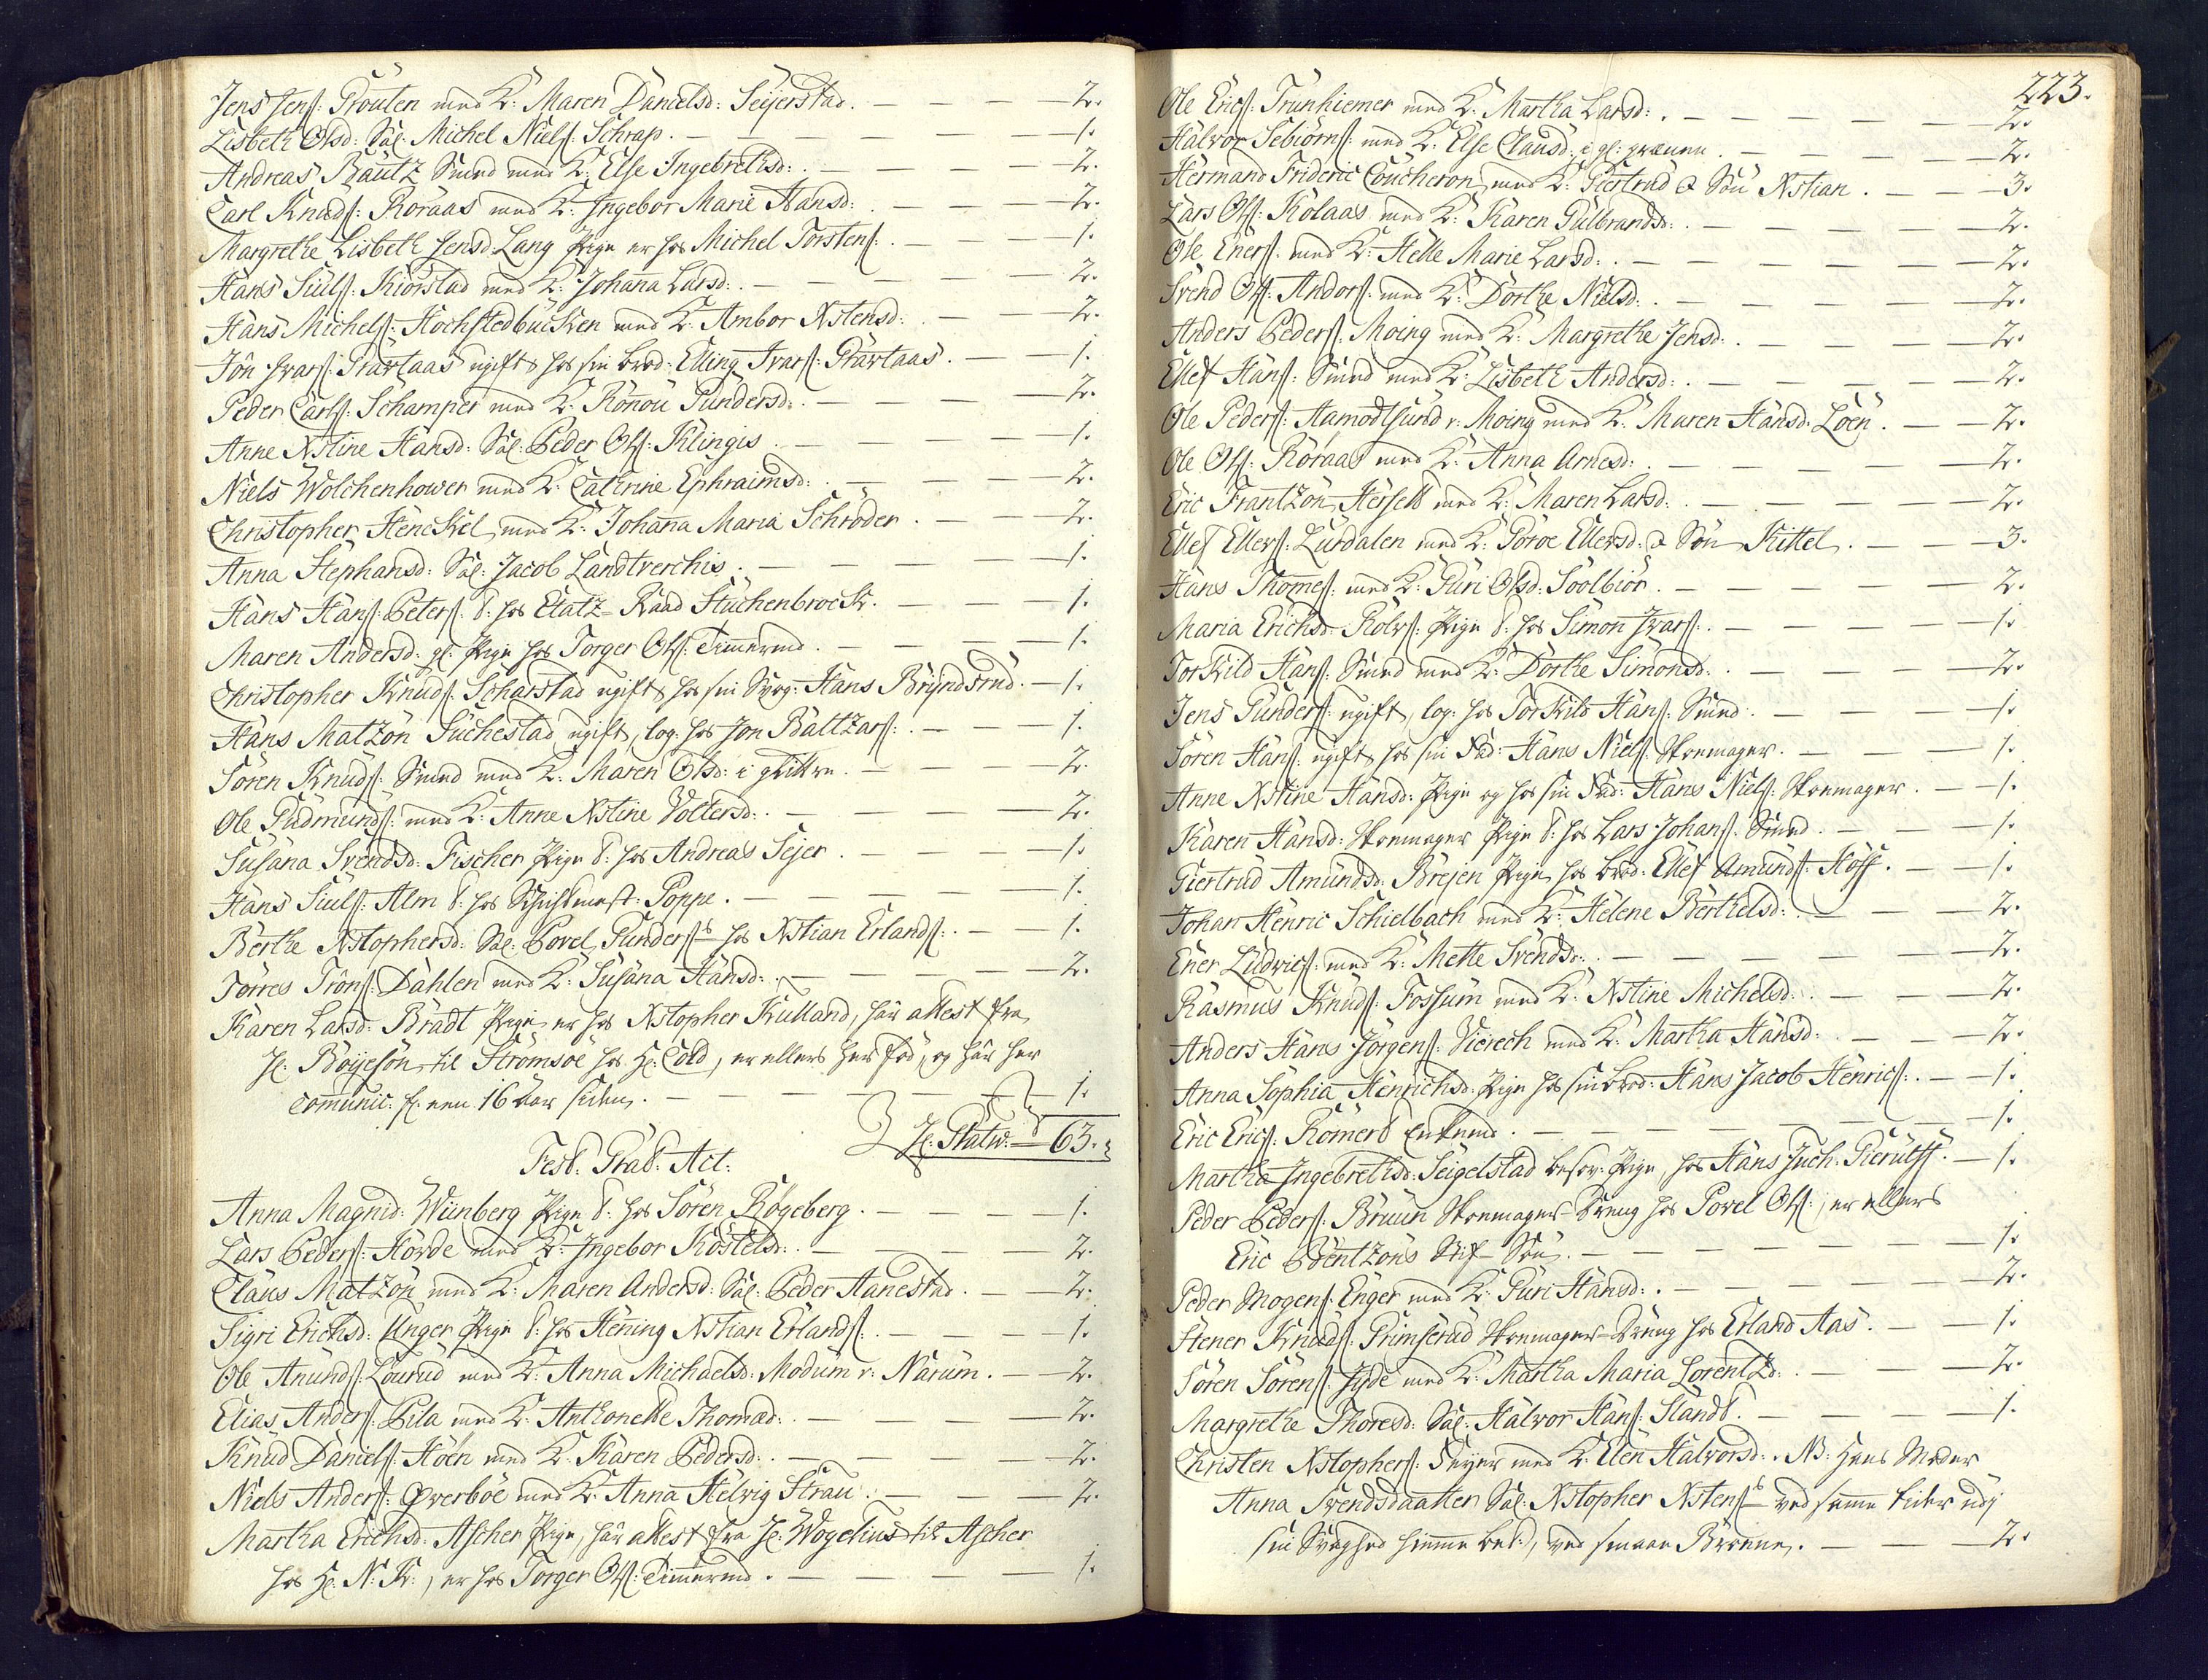 Jens Jens: Prouten med K: Maren Danielsd: Seijerstad. — 2.
Lisbeth Olsd: Sal: Michel Niels: Schrap. — 1.
Andreas Bautz Smed med K: Else Ingebrethsd: — 2.
Carl Knuds: Röraas med K: Ingebor Marie Hansd: — 2.
Margrethe Lisbeth Jensd. Lang Pige er hos Michel Torstens: — 1.
Hans Siuls: Kiörstad med K: Johanna Larsd: — 2.
Hans Michels: Hochstedbucken med K: Ambor Xstensd: — 2.
Jon Ivars: Prærtaas ugift hos sin brod: Elling Ivars: Prærtaas. — 1.
Peder Carls: Schamper med K: Rönou Gundersd: — 2.
Anne Xstine Hansd: Sal: Peder Ols: Klingis. — 1.
Niels Wolchenhower med K: Cathrine Ephraimsd: — 2.
Christopher Henckel med K: Johanna Maria Schröder. — 2.
Anna Stephansd: Sal: Jacob Landtverchis. — 1.
Hans Hans: Peters: t: hos Etatz-Raad Stuckenbrock. — 1.
Maren Andersd: gl: Pige hos Torger Ols: Timmermd. — 1.
Christopher Knuds: Scharstad ugift hos sin Svog: Hans Bryndsmd. — 1.
Hans Matzön Suchestad ugift, log: hos Jon Baltzars: — 1.
Sören Knuds: Smed med K: Maren Olsd: i — 2.
Ole Gudmunds: med K: Anne Xstine Voltersd: — 2.
Susana Svendsd: Fischer Pige t: hos Andreas Sejer. — 1.
Hans Siuls: Alm t: hos Schichtmest: Poppe. — 1.
Berthe Xstophersd: Sal: Povel Gunders: hos Xstian Erlands: — 1.
Törres Tröns: Dahlen med K: Susana Hansd: — 2.
Karen Larsd: Bradt Pige er hos Xstopher Kulland, har attest fra
Hr. Böijesön til Strömsöe hos Hr: Cold, er ellers her föd, og har her
communic: for en 16 Aar siden. — 1.
Hr. — 63.
Fest: Præs: Act:
Anna Magnid: Winberg Pige t: hos Sören Rögeberg. — 1.
Lars Peders: Hörde med K: Ingebor Kostelsd: — 2.
Claus Matzön med K: Maren Andersd: Sal: Peder Aanestad. — 2.
Sigri Erichsd: Unger Pige t: hos Hening Xstian Erlands: — 1.
Ole Anunds: Lourud med K: Anna Michaelsd: Modum v: Narum. — 2.
Elias Anders: Pila med K: Anthonette Thomæd: — 2.
Knud Daniels: Höen med K: Karen Pedersd: — 2.
Niels Anders: Qverböe med K: Anna Helvig Strau. — 2.
Martha Erichsd: Ascher Pige, har attest fra Hr: Wogelius til Ascher
hos Hr: N: K:, er hos Torger Ols: Timmermd. — 1.
223.
Ole Erics: Trunhiemer med K: Martha Larsd: — 2.
Halvor Sebiörns: med K: Else Clausd: — 2.
Hermand Frideric Coucheron med K: Giertrud & Sön Xstian. — 3.
Lars Ols: Kolaas med K: Karen Gulbrandsd: — 2.
Ole Eners: med K: Helle Marie Larsd: — 2.
Svend Ols: Andors: med K: Dorthe Nielsd: — 2.
Anders Peders: Moing med K: Margrethe Jensd: — 2.
Ellef Hans: Smed med K: Lisbeth Andersd: — 2.
Ole Peders: Aamodtsund v: Moing med K: Maren Hansd: Löen. — 2.
Ole Ols: Röraas med K: Anna Arnesd: — 2.
Eric Frantzön Hersett med K: Maren Larsd: — 2.
Ellef Ellevs: Lurdalen med K: Göroe Ellevsd: & Sön Kittel. — 3.
Hans Thomes: med K: Guri Olsd: Soolbiör. — 2.
Maria Erichsd: Rölvs: Pige t: hos Simon Ivars: — 1.
Torkild Hans: Smed med K: Dorthe Simonsd: — 2.
Jens Gunders: ugift, log: hos Torkild Hans: Smed. — 1.
Sören Hans: ugift hos sin Fad: Hans Niels: Skomager. — 1.
Anne Xstine Hansd: Pige og hos sin Fad: Hans Niels: Skomager. — 1.
Karen Hansd: Skomager Pige t: hos Lars Johans: Smed. — 1.
Giertrud Amundsd: Brejen Pige, hos brod: Ellef Amunds: Hoff. — 1.
Johan Henric Schielbach med K: Helene Berthelsd: — 2.
Ener Ludvics: med K: Mette Svendsd: — 2.
Rasmus Knuds: Fossum med K: Xstine Michelsd: — 2.
Anders Hans Jörgens: Vierech med K: Martha Hansd: — 2.
Anna Sophia Henrichsd: Pige hos sin brod: Hans Jacob Henrics: — 1.
Eric Erics: Römert Enkemd. — 1.
Martha Ingebrethsd: Seigelstad besov: Pige, hos Hans Juch: Gierulff. — 1.
Peder Peders: Bruun Skomager-Dreng hos Povel Ols:, er ellers
Eric Bentzöns Stif-Sön. — 1.
Peder Mogens: Enger med K: Guri Hansd: — 2.
Stener Knuds: Grimserud Skomager-Dreng hos Erland Aas. — 1.
Sören Sörens: Jyde med K: Martha Maria Lorentzd: — 2.
Margrethe Thoresd: Sal: Halvor Hans: Standt. — 1.
Christen Xstophers: Feyer med K: Elen Halvorsd: NB: Hans Moder
Anna Svendsdaatter Sal: Xstopher Xstens: ved samme tider udj
sin Svaghed hiemme bet:, ved — 2.